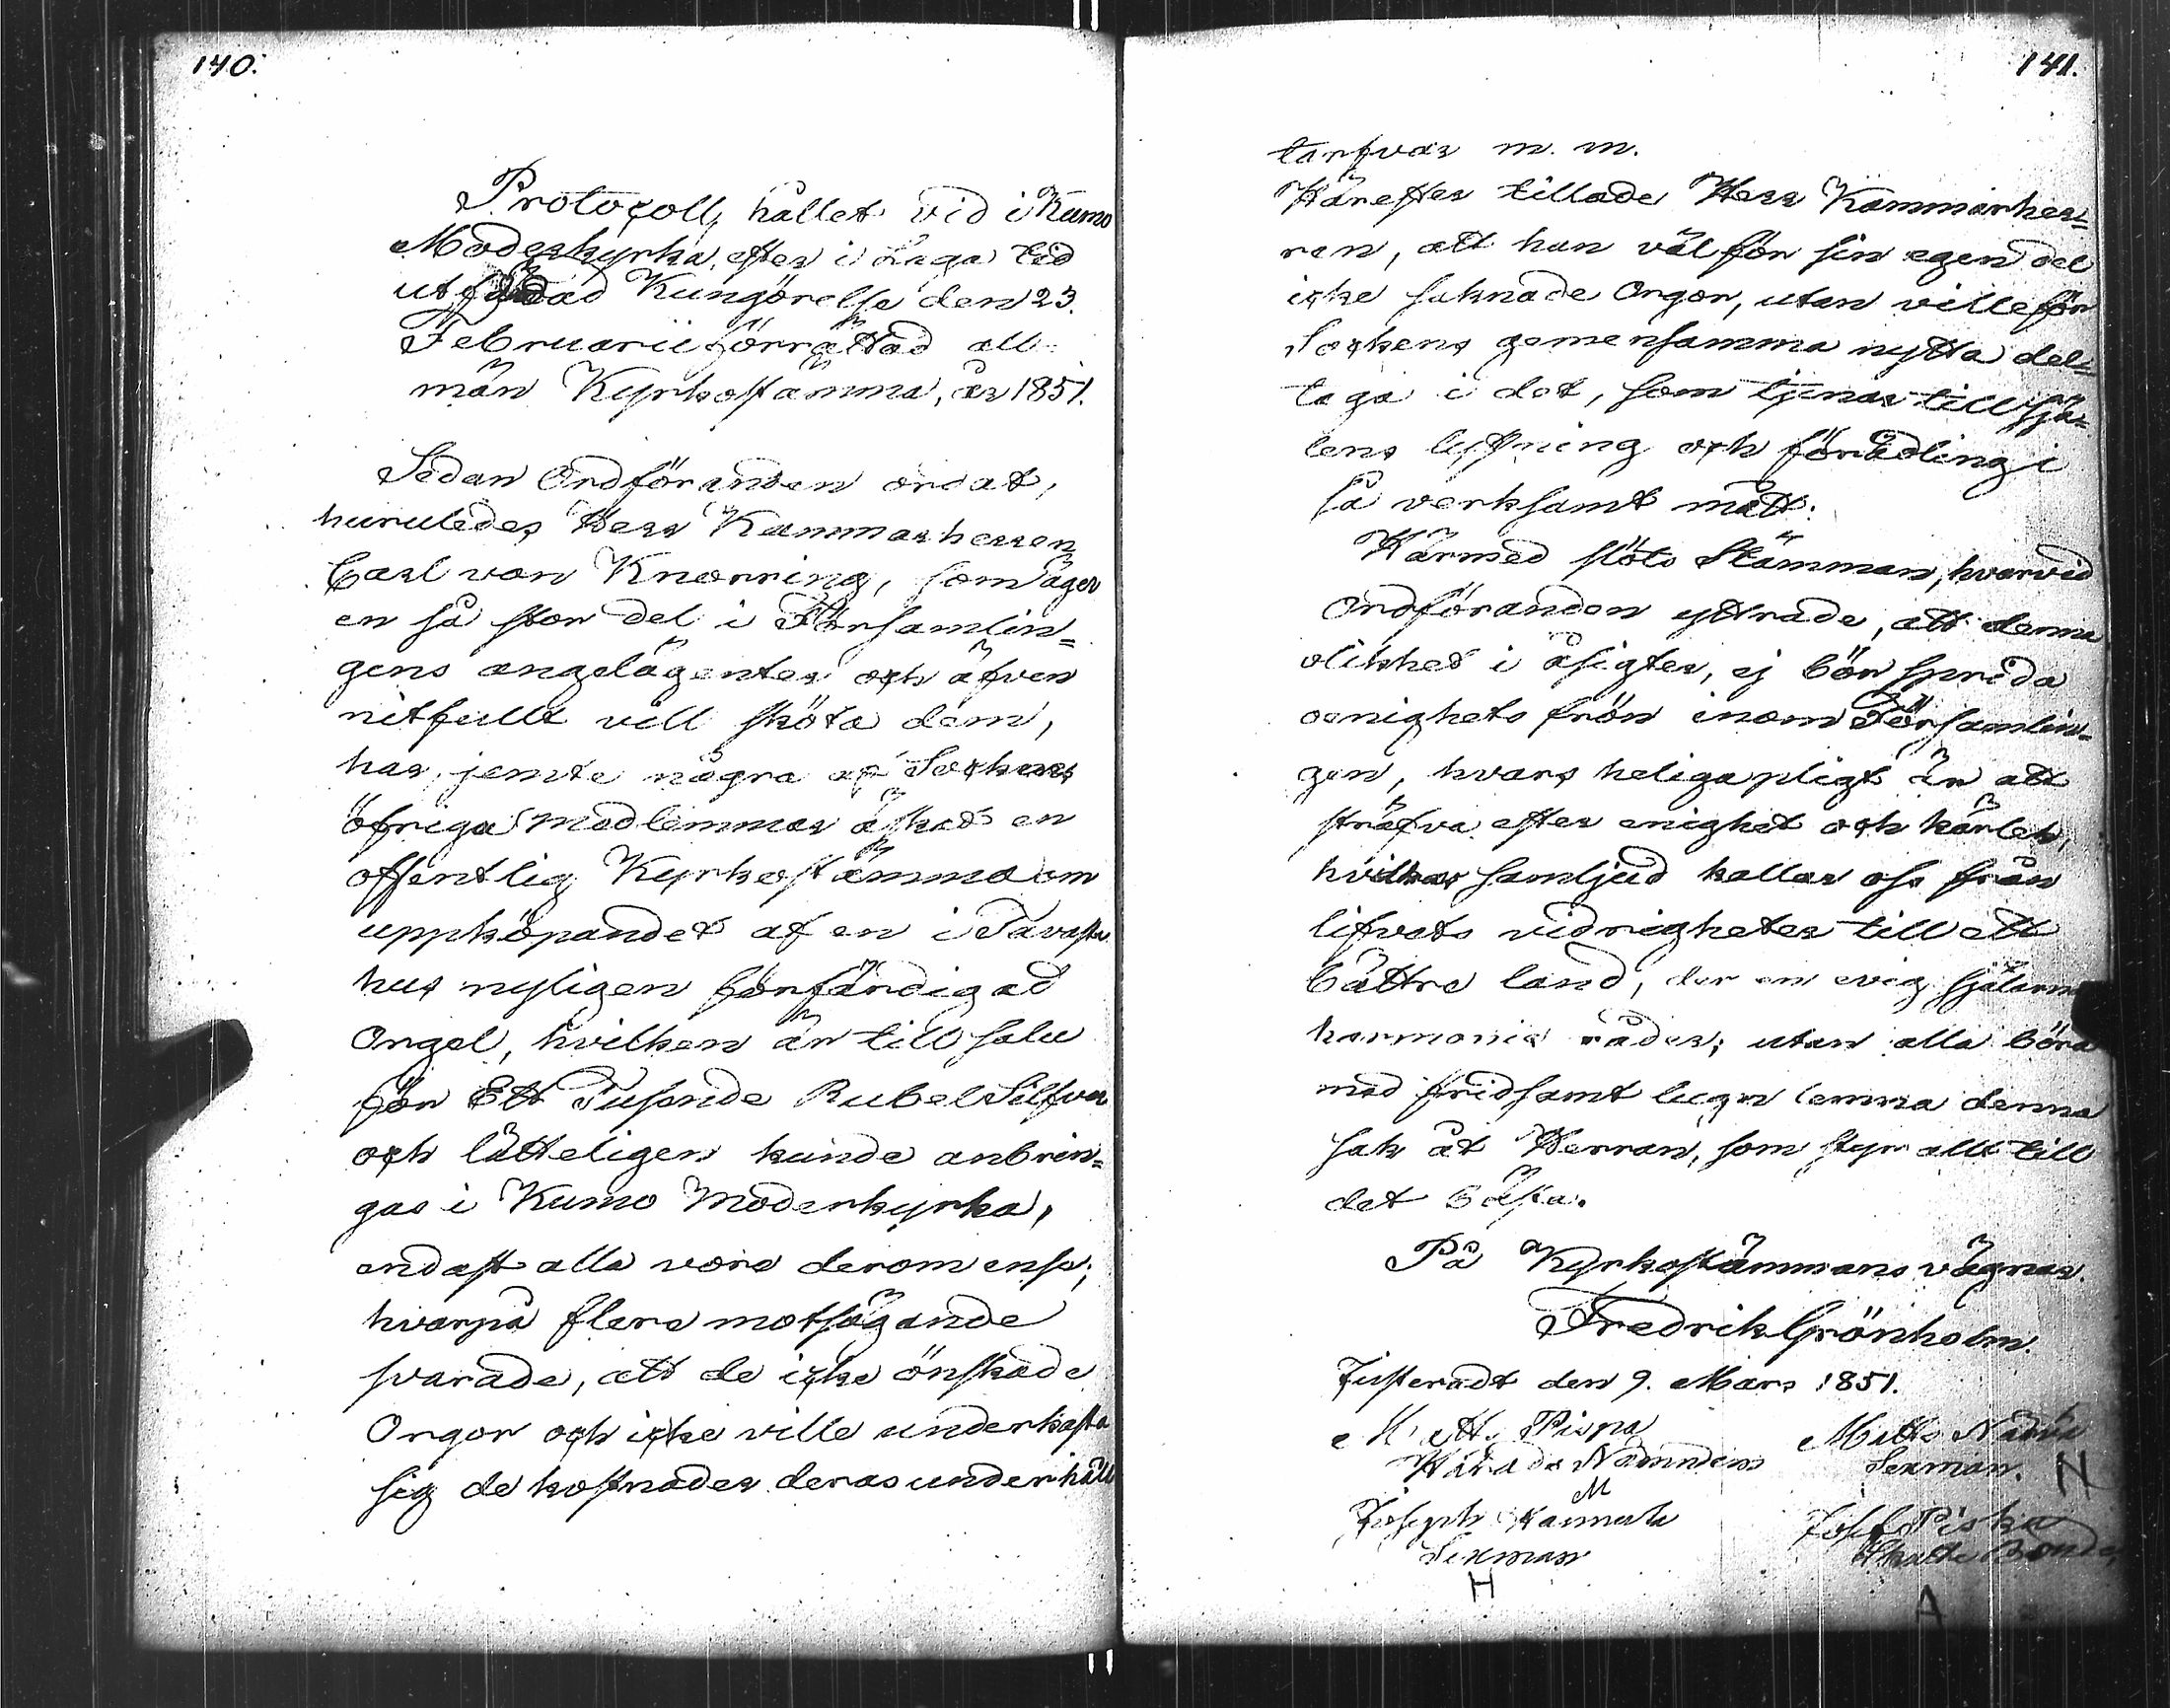 140.
Protocoll, hållet vid i Kumo
Moderkyrka, efter i Laga tid
utfärdad Kungörelse den 23.
Februarii förrättad all-
män Kyrkostämma, år 1851.
Sedan Ordföranden ordat,
huruledes Herr Kammarherren
Carl von Knorring, som äger
en så stor del i Församlin=
gens angelägenter och äfven
nitfullt vill sköta dem,
har, jemte några af Socknens
öfriga medlemmar äskat en
offentlig Kyrkostämma om
uppköpandet af en i Tavaste
hus nyligen förfärdigad
Orgel, hvilken är till salu
för Ett Tusende Rubel Silfver
och lätteligen kunde anbrin=
gas i Kumo Moderkyrka,
endast alla voro derom ense;
hvarpå flere motsägande
svarade, att de icke önskade
Orgor och icke ville underkasta
sig de kostnader deras underhåll
141.
tarfvar m. m.
Härefter tillade Herr Kammarher=
ren, att han väl för sin egen del
icke saknade Orgor, utan ville för
Sockens gemensamma nytta del=
taga i det, som tjenar till sjä=
lens lyftning och förädling i
så verksamt mått.
Härmed slöts Stämman, hvarvid
Ordföranden yttrade, att denna
olikhet i åsigter, ej bör sprida
oenighets frön inom Församlin=
gen, hvars heliga pligt är att
sträfva efter enighet och kärlek,
hvilkas samljud kallar oss från
lifvets vidrigheter till ett
bättre land, der en evig själarnas
harmonie råder; utan alla böra
med fridsamt lugn lemna denna
sak åt Herran, som styr allt till
det bästa.
På Kyrkostämmans vägnar.
Fredrik Grönholm.
Justeradt den 9. Mars 1851.
Matts Pispa
Härads Nämndem
M
Matts
Sexman.
N
Joseph
Sexman
H
Josef Piska
Bonde
A